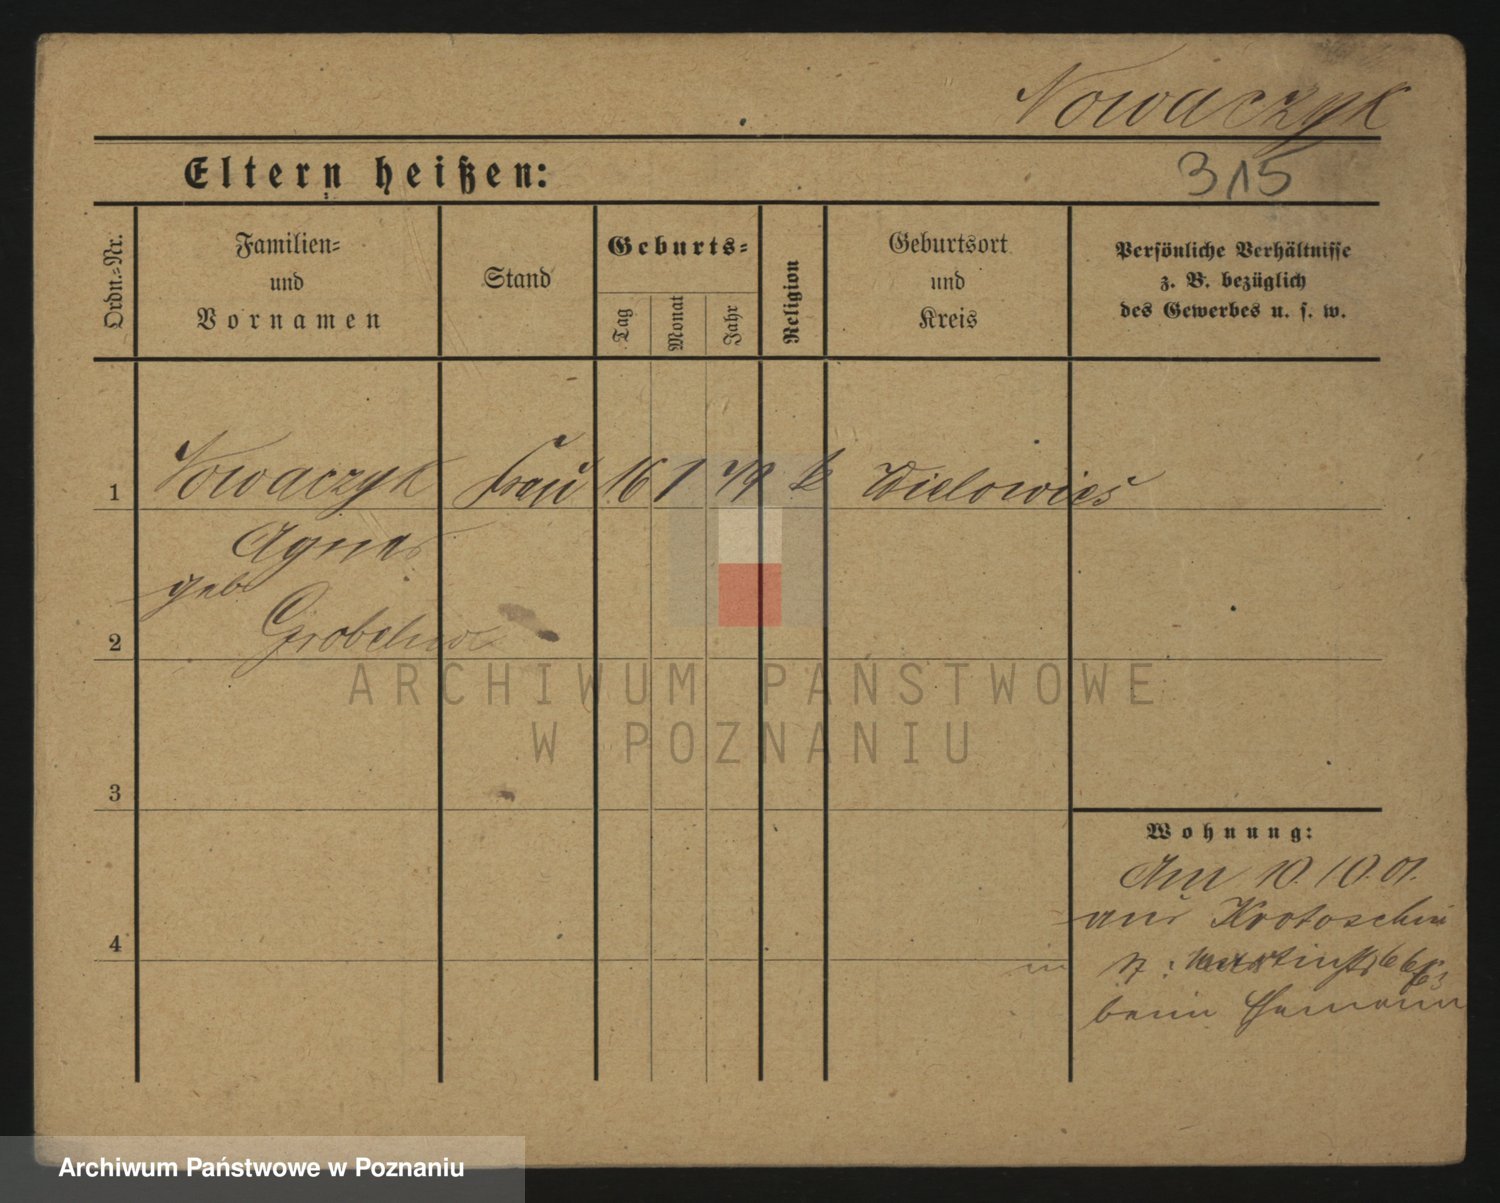 Nowaczyk
Eltern heißen:
315
Ordn.-Nr.
Familien-
und
Vornamen
Stand
Geburts-
Tag
Monat
Jahr
Religion
Geburtsort
und
Kreis
Persönliche Verhältnisse
z. B. bezüglich
des Gewerbes u. s. w.
1 Nowaczyk Frau 16 1 79 k Wielowieś
Agnes
geb
2
ARCHIWUM PAŃSTWOWE
W POZNANIU
3
Wohnung:
Am 10. 10. 01.
aus Krotoschin
4
beim Ehemann
Archiwum Państwowe w Poznaniu